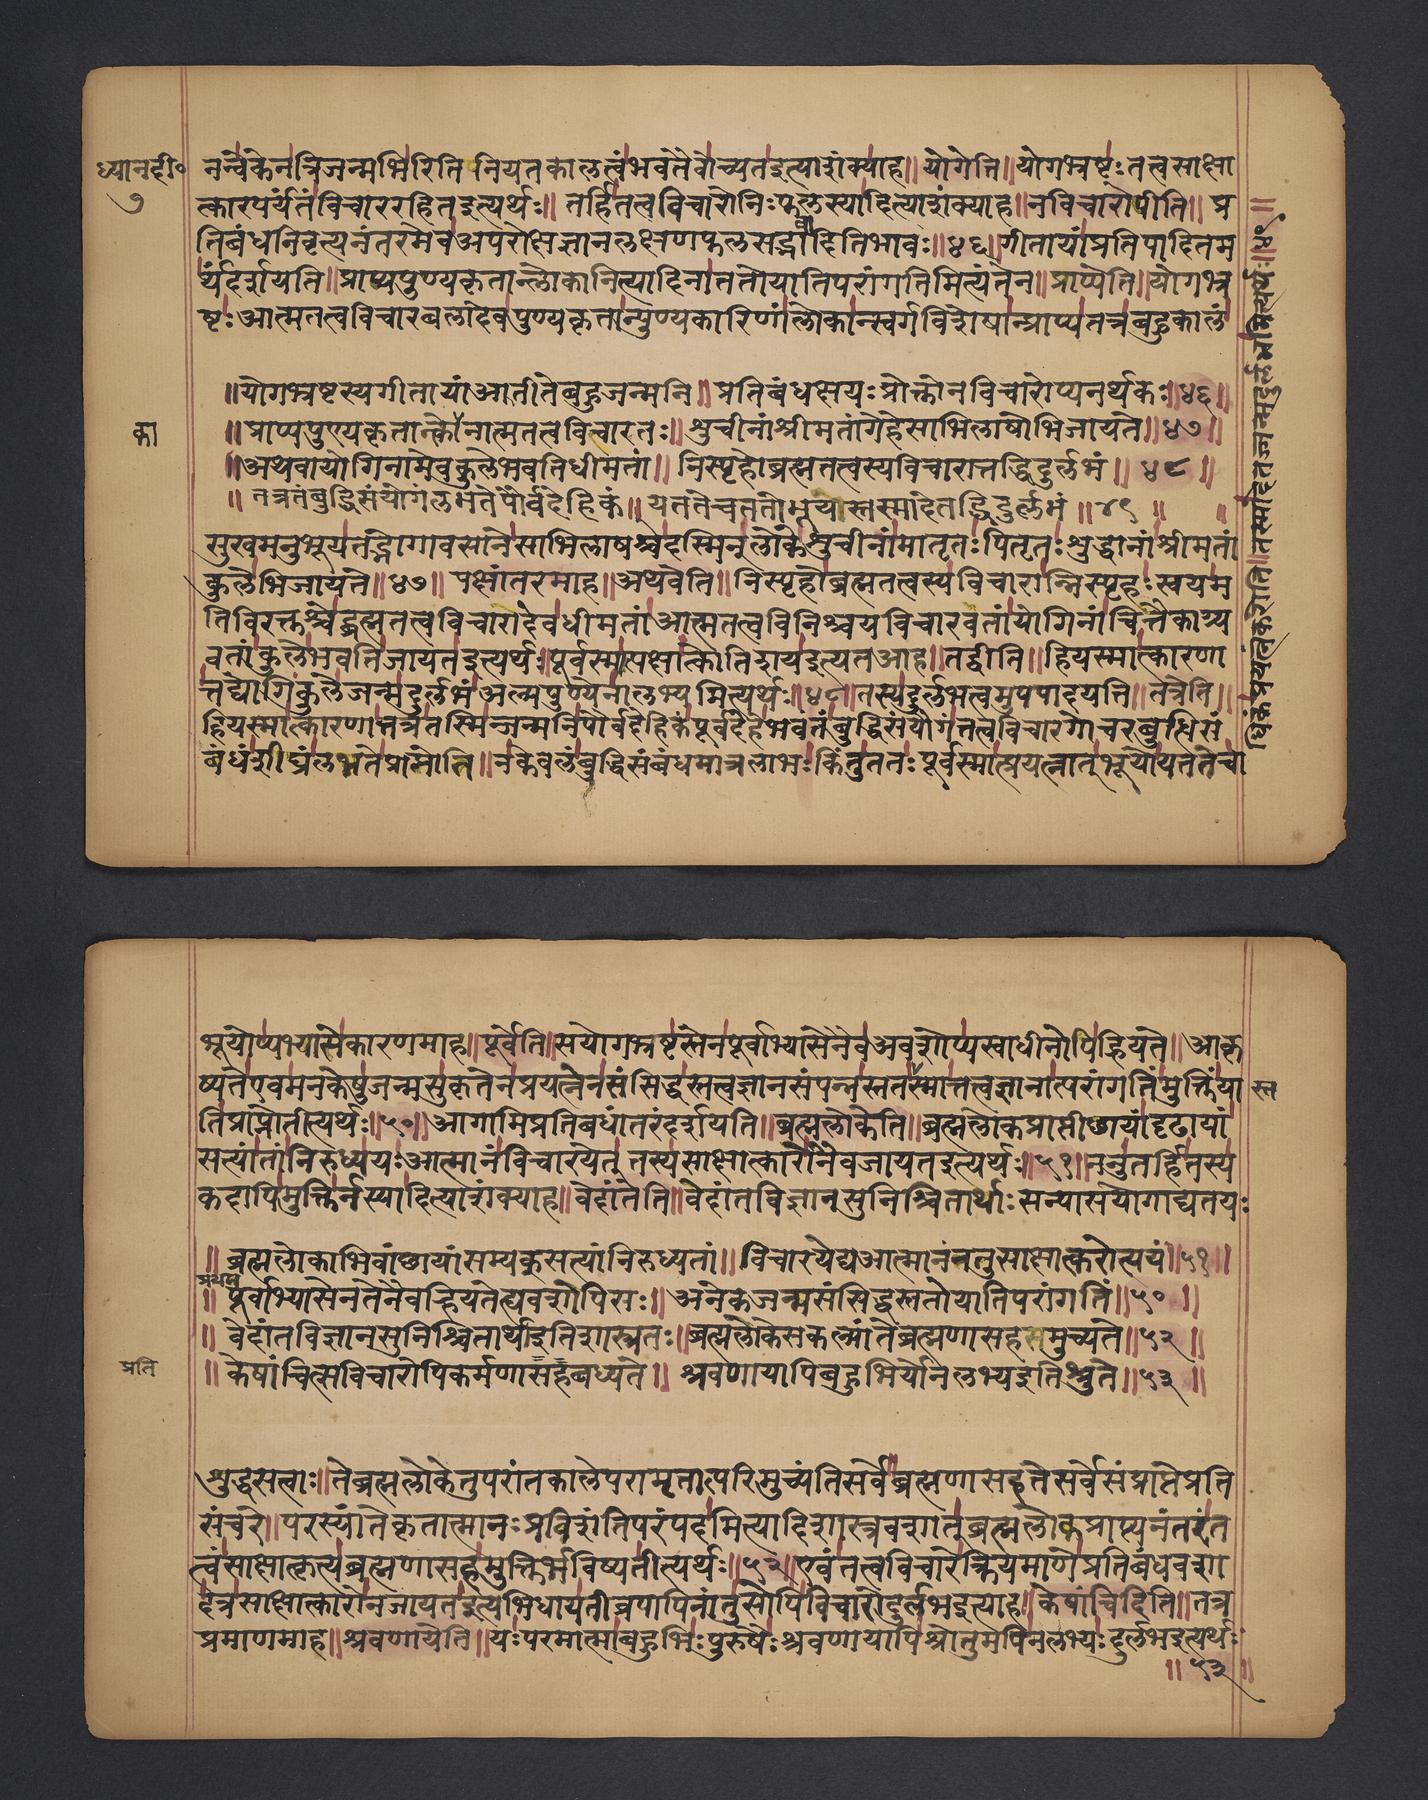 ध्यानदी०
७
नन्वेकेनत्रिजन्मभिरितिनियतकालत्वंभवतैवोच्यतइत्याशंक्याह॥योगेति॥योगभ्रष्टःतत्वसाक्षा
त्कारपर्यंतंविचाररहितइत्यर्थः॥तर्हितत्वविचारोनिःफलस्यादित्याशंक्याह॥नविचारोपीति॥प्र
तिबंधनिवृत्यनंतरमेवअपरोक्षज्ञानलक्षणफलसद्भावादितिभावः॥४६॥गीतायांप्रतिपादितम
र्थंदर्शयति॥प्राप्यपुण्यकृतान्लोकानित्यादिनाततोयातिपरांगतिमित्यंतेन॥प्राप्येति॥योगभ्र
ष्टःआत्मतत्वविचारबलादेवपुण्यकृतान्पुण्यकारिणांलोकान्स्वर्गविशेषान्प्राप्यतत्रबहुकालं
॥योगभ्रष्टस्यगीतायांआतीतेबहुजन्मनि॥प्रतिबंधक्षयःप्रोक्तोनविचारोप्यनर्थकः॥४६॥
का
॥प्राप्यपुण्यकृतान्लोकानात्मतत्वविचारतः॥शुचीनांश्रीमतांगेहेसाभिलाषोभिजायते॥४७॥
॥अथवायोगिनामेवकुलेभवतिधीमतां॥निस्पृहोब्रह्मतत्वस्यविचारात्तद्धिदुर्लभं॥४८॥
॥तत्रतंबुद्धिसंयोगंलभतेपौर्वदेहिकं॥यततेचततोभूयोस्तस्मादेतद्धिदुर्लभं॥४९॥
सुखमनुभूयतद्भोगावसानेसाभिलाषश्चेदस्मिन्लोकेशुचीनांमातृतःपितृतःशुद्धानांश्रीमतां
कुलेभिजायते॥४७॥पक्षांतरमाह॥अथवेति॥निस्पृहोब्रह्मतत्वस्यविचारान्निस्पृहःस्वयम
तिविरक्तश्चेद्ब्रह्मतत्वविचारादेवधीमतांआत्मतत्वविनिश्चयविचारवतांयोगिनांचित्तैकाग्र्य
वतांकुलेभवतिजायतइत्यर्थः॥पूर्वस्मात्पक्षात्कोतिशयइत्यतआह॥तद्धीति॥हियस्मात्कारणा
त्तद्योगिकुलेजन्मदुर्लभंअल्पपुण्येनालभ्यमित्यर्थः॥४८॥तस्यदुर्लभत्वमुपपादयति॥तत्रेति॥
हियस्मात्कारणात्तत्रतस्मिन्जन्मनिपौर्वदेहिकंपूर्वदेहेभवतंबुद्धिसंयोगंतत्वविचारगोचरबुध्धिसं
बंधंशीघ्रंलभतेप्राप्नोति॥नकेवलंबुद्धिसंबंधमात्रलाभःकिंतुततःपूर्वस्मात्प्रयत्नात्भूयोयततेचा
धिकंप्रयत्नंकरोति॥तस्मादेतज्जन्मदुर्लभमित्यर्थः॥४९॥
भूयोप्यभ्यासेकारणमाह॥पूर्वेति॥सयोगभ्रष्टस्तेनपूर्वाभ्यासेनैवअवशोप्यस्वाधीनोपिह्रियते॥आकृ
ष्यतेएवमनेकेषुजन्मसुकृतेनप्रयत्नेनसंसिद्धस्तत्वज्ञानसंपन्नस्ततस्मात्तत्वज्ञानात्परांगतिंमुक्तिंया
स्त
तिप्राप्नोतीत्यर्थः॥५०॥आगामिप्रतिबधांतरंदर्शयति॥ब्रह्मलोकेति॥ब्रह्मलोकप्राप्तीछायांदृढायां
सत्यांतांनिरुध्ययःआत्मानंविचारयेत्तस्यसाक्षात्कारोनैवजायतइत्यर्थः॥५१॥ननुतर्हितस्य
कदापिमुक्तिर्नस्यादित्याशंक्याह॥वेदांतेति॥वेदांतविज्ञानसुनिश्चितार्थाःसन्यासयोगाद्यतयः
॥ब्रह्मलोकाभिवांछायांसम्यक्सत्यांनिरुध्यतां॥विचारयेद्यआत्मानंनतुसाक्षात्करोत्ययं॥५१॥
॥पूर्वाभ्यासेनतेनैवह्रियतेह्यवशोपिसः॥अनेकजन्मसंसिद्धस्ततोयातिपरांगतिं॥५०॥
॥वेदांतविज्ञानसुनिश्चितार्थाइतिशास्त्रतः॥ब्रह्मलोकेसकल्पांतेब्रह्मणासहसमुच्यते॥५२॥
प्रति
॥केषांचित्सविचारोपिकर्मणासहबध्यते॥श्रवणायापिबहुभिर्योनलभ्यइतिश्रुते॥५३॥
शुद्धसत्वाः॥तेब्रह्मलोकेतुपरांतकालेपरामृतात्परिमुच्यंतिसर्वेब्रह्मणासहतेसर्वेसंप्राप्तेप्रति
संचरे॥परस्यांतेकृतात्मानःप्रविशंतिपरंपदमित्यादिशास्त्रवशात्ब्रह्मलोकप्राप्यनंतरंत
त्वंसाक्षात्कृत्यब्रह्मणासहमुक्तिर्भविष्यतीत्यर्थः॥५२॥एवंतत्वविचारेक्रियमाणेप्रतिबंधवशा
देवसाक्षात्कारोनजायतइत्यभिधायतीव्रपापिनांतुसोपिविचारोदुर्लभइत्याह॥केषांचिदिति॥तत्र
प्रमाणमाह॥श्रवणायेति॥यःपरमात्माबहुभिःपुरुषैःश्रवणायापिश्रोतुमपिनलभ्यःदुर्लभइत्यर्थः
॥५३॥